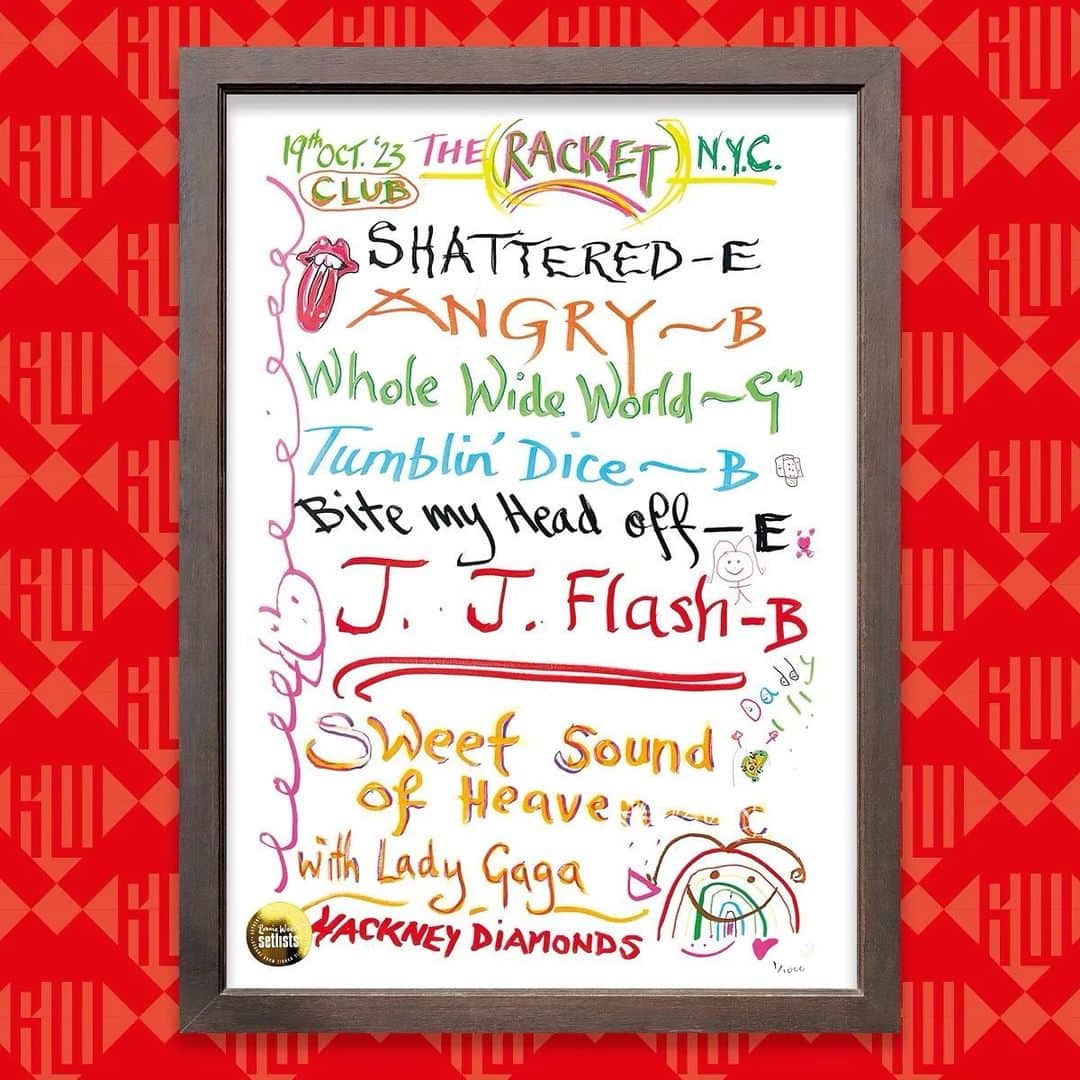 19th OCT. '23 THE (RACKET) N.Y.C.
CLUB
SHATTERED - E
ANGRY ~ B
Whole Wide World ~ G m
Tumblin' Dice ~ B
Bite my Head off - E
J. J. Flash - B
Daddy
Sweet Sound
of Heaven ~ C
with Lady Gaga
HACKNEY DIAMONDS
Ronnie Wood
setlists
1/1000